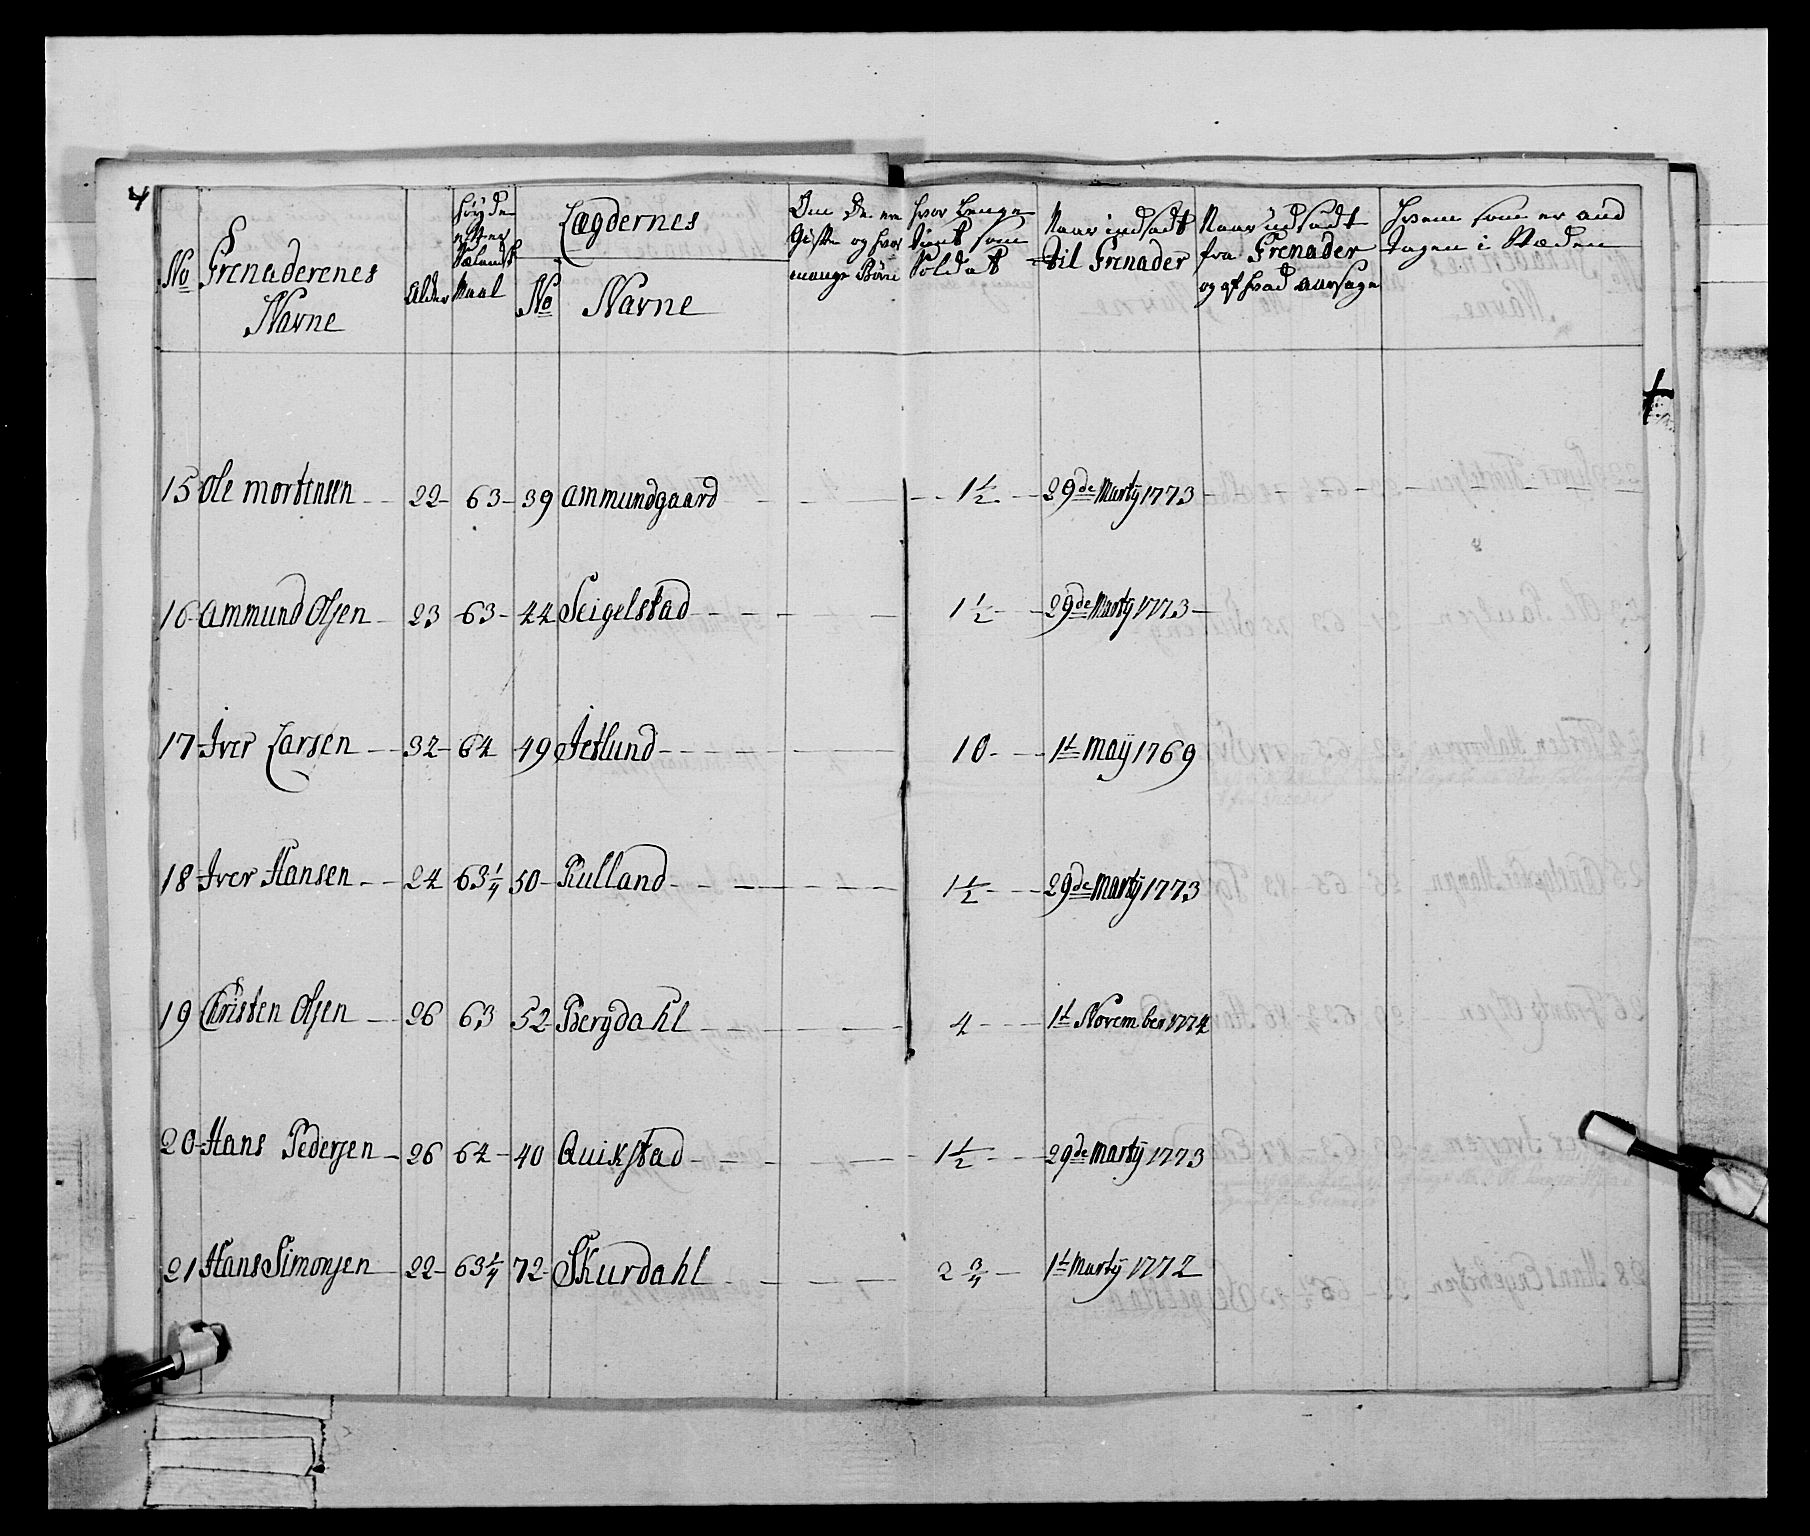 4
No
Grenaderenes
Navne
Alder
Høyde
efter
Siælands
Maal
Lægdernes
No Navne
Om De ere
Gifte og hvor
mange Børn
hvor længe
tient som
Soldat
Naar indsadt
til Grenader
Naar udsadt
fra Grenader
og af hvad aarsage
Hvem som er and
tagen i Stæden
15 Ole Mortensen 22 63 39 Ammundgaard 1 1/2 29de Martÿ 1773
16 Ammund Olsen 23 63 44 Seigelstad 1 1/2 29de Martÿ 1773
17 Iver Larsen 32 64 49 Jetlund 10 1t Maÿ 1769
18 Iver Hansen 24 63 1/4 50 Rulland 1 1/2 29de Martÿ 1773
19 Christen Olsen 26 63 52 Bergdahl 4 1t November 1774
20 Hans Pedersen 26 64 40 Quikstad 1 1/2 29de Martÿ 1773
21 Hans Simonsen 22 63 1/4 72 Skurdahl 2 3/4 1t Martÿ 1772